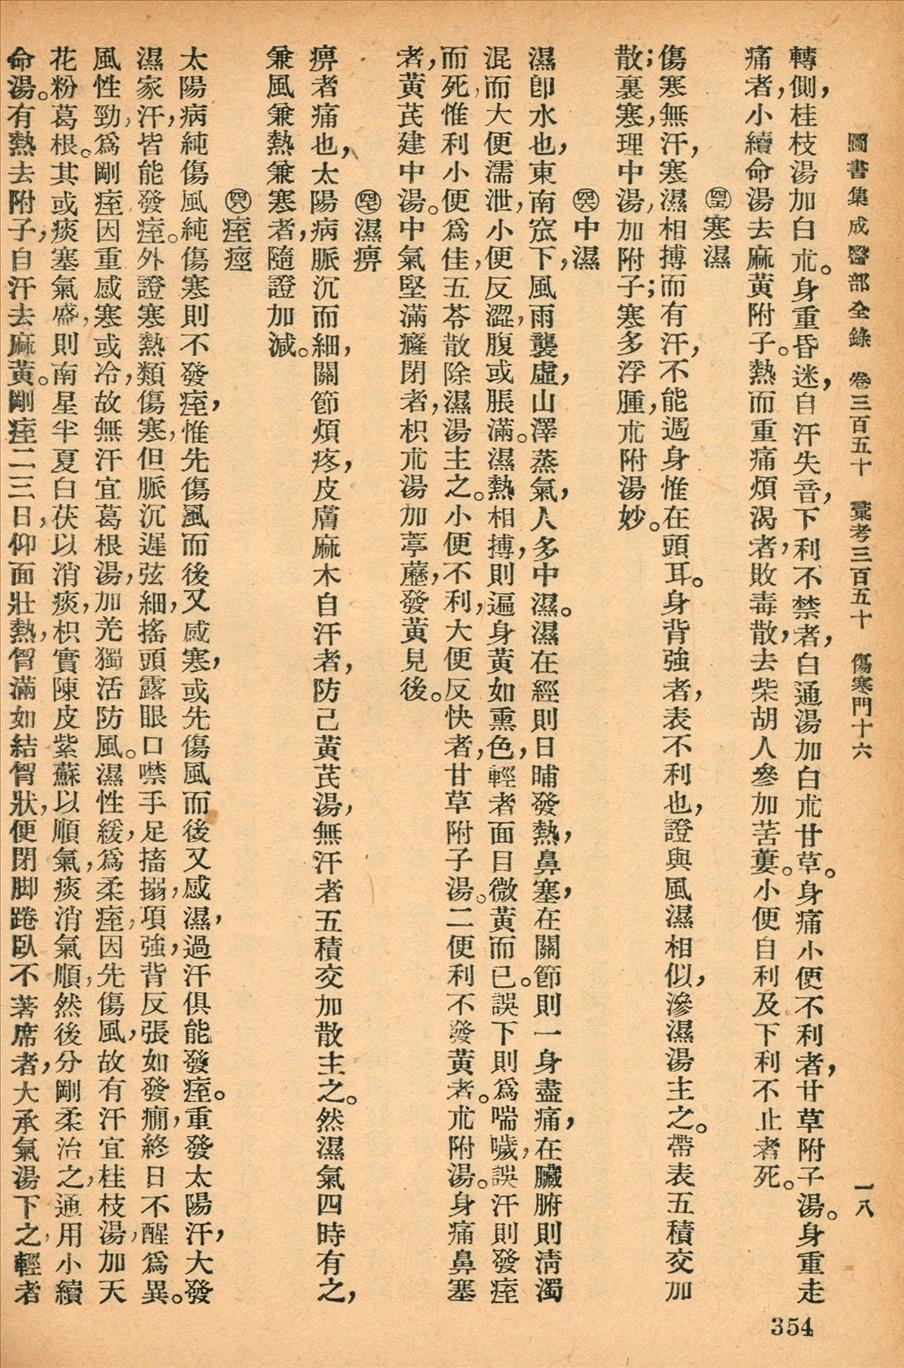 圖書集成醫部全錄　卷三百五十　彙考三百五十　傷寒門十六　一八
轉側，桂枝湯加白朮。身重昏迷，自汗失音，下利不禁者，白通湯加白朮甘草。身痛小便不利者，甘草附子湯。身重走
痛者，小續命湯去麻黃附子。熱而重痛煩渴者，敗毒散，去柴胡人參加苦蔞。小便自利及下利不止者死。
寒濕
傷寒無汗，寒濕相搏而有汗，不能週身惟在頭耳。身背強者，表不利也，證與風濕相似，滲濕湯主之。帶表五積交加
散；裏寒，理中湯，加附子；寒多浮腫，朮附湯妙。
中濕
濕卽水也，東南窊下，風雨襲虛，山澤蒸氣，人多中濕。濕在經則日晡發熱，鼻塞，在關節則一身盡痛，在臟腑則淸濁
混而大便濡泄，小便反澀，腹或脹滿。濕熱相搏，則遍身黃如熏色，輕者面目微黃而已。誤下則爲喘噦，誤汗則發痙
而死，惟利小便爲佳，五苓散除濕湯主之。小便不利，大便反快者，甘草附子湯。二便利不發黃者。朮附湯。身痛鼻塞
者，黃芪建中湯。中氣堅滿癃閉者，枳朮湯加葶藶，發黃見後。
濕痹
痹者痛也，太陽病脈沉而細，關節煩疼，皮膚麻木自汗者，防己黃芪湯，無汗者五積交加散主之。然濕氣四時有之，
兼風兼熱兼寒者，隨證加減。
痙痓
太陽病純傷風純傷寒則不發痙，惟先傷風而後又感寒，或先傷風而後又感濕，過汗俱能發痙。重發太陽汗，大發
濕家汗，皆能發痙。外證寒熱類傷寒，但脈沉遲弦細，搖頭露眼口噤手足搐搦，項強，背反張如發癇，終日不醒爲異。
風性勁，爲剛痙，因重感寒或冷，故無汗宜葛根湯，加羌獨活防風。濕性緩，爲柔痙，因先傷風，故有汗宜桂枝湯，加天
花粉葛根。其或痰塞氣盛，則南星半夏白茯以消痰，枳實陳皮紫蘇以順氣，痰消氣順，然後分剛柔治之，通用小續
命湯。有熱去附子，自汗去麻黃。剛痙二三日，仰面壯熱，胷滿如結胷狀，便閉脚踡臥不著席者，大承氣湯下之，輕者
354